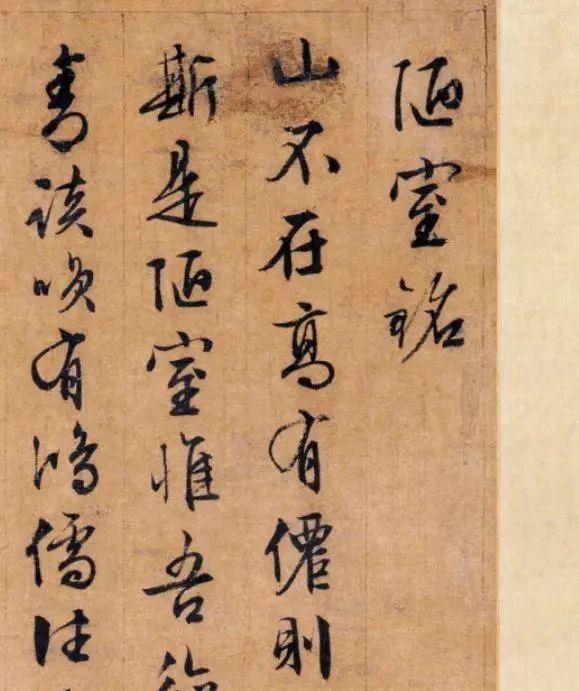 陋室銘
山不在高有僊則
斯是陋室惟吾德
青談咲有鴻儒往